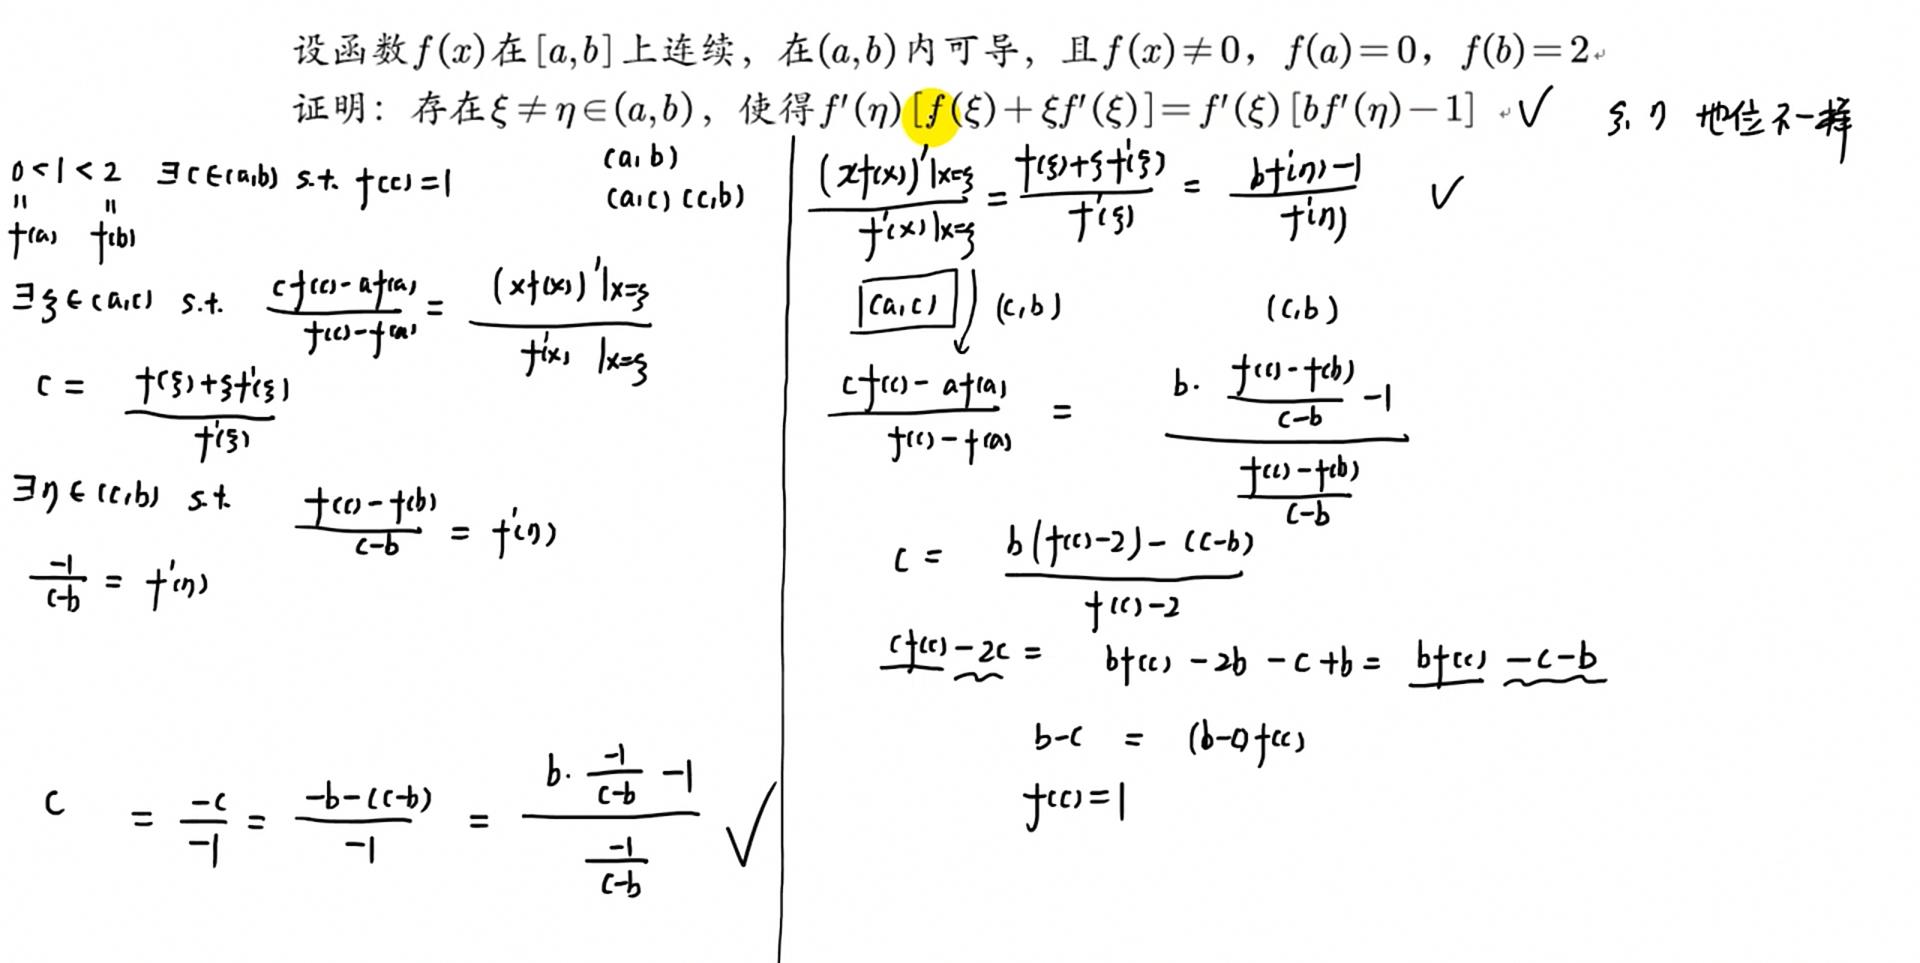 设函数f(x)在[a,b]上连续，在(a,b)内可导，且f(x)≠0，f(a)=0，f(b)=2
证明：存在ξ≠η∈(a,b)，使得f′(η)[f(ξ)+ξf′(ξ)]=f′(ξ)[bf′(η)−1] ✓ ξ,η 地位不一样
0<1<2 ∃c∈(a,b) s.t. f(c)=1
" "
f(a) f(b)
(a,b)
(a,c) (c,b)
∃ξ∈(a,c) s.t. (cf(c)-af(a))/(f(c)-f(a)) = (xf(x))′|x=ξ / f′(x)|x=ξ
c = (f(ξ)+ξf′(ξ))/f′(ξ)
∃η∈(c,b) s.t (f(c)-f(b))/(c-b) = f′(η)
-1/(c-b) = f′(η)
c = -c/-1 = (-b-(c-b))/-1 = (b·(-1/(c-b))-1)/(-1/(c-b)) ✓
(xf(x))′|x=ξ / f′(x)|x=ξ = (f(ξ)+ξf′(ξ))/f′(ξ) = (bf′(η)-1)/f′(η) ✓
(a,c) (c,b) (c,b)
(cf(c)-af(a))/(f(c)-f(a)) = (b·(f(c)-f(b))/(c-b) -1)/((f(c)-f(b))/(c-b))
c = (b(f(c)-2)-(c-b))/(f(c)-2)
cf(c)-2c = bf(c)-2b-c+b = bf(c)-c-b
b-c = (b-c)f(c)
f(c)=1